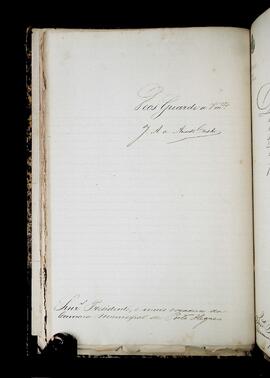 Deos Guarde a Vm.ces
J. A.
Snr.s Presidente, e mais vereadores da
Camara Municipal de Porto Alegre